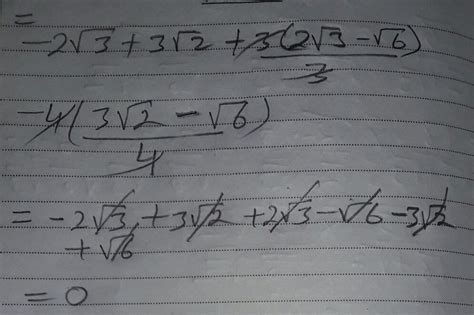 =
-2√3 + 3√2 + 3(2√3 - √6)
3
-4(3√2 - √6)
4
= -2√3 + 3√2 + 2√3 - √6 - 3√2
+ √6
= 0